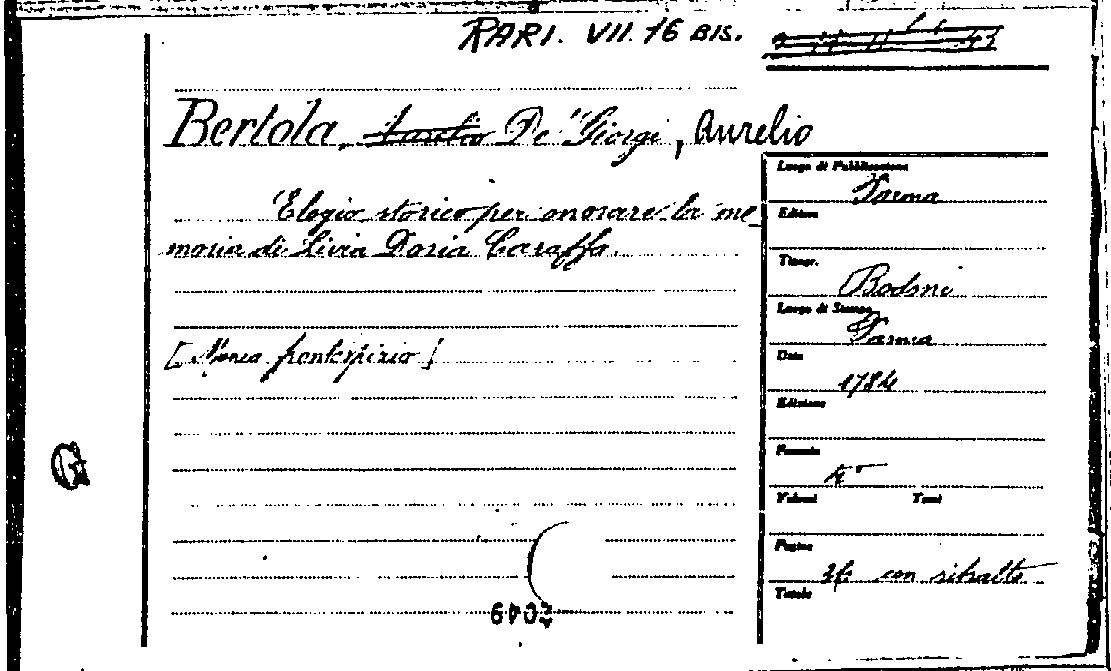 RARI. VII. 16 BIS.
Bertola, De' Giorgi, Aurelio
Elogio storico per onorare la me
moria di Livia Doria Caraffa.
[Manca frontespizio]
Luogo di Pubblicazione
Parma
Editore
Tipogr.
Bodoni
Luogo di Stampa
Parma
Data
1784
Edizione
Formato
4°
Volumi Tomi
Pagine
con ritratto
Tavole
G